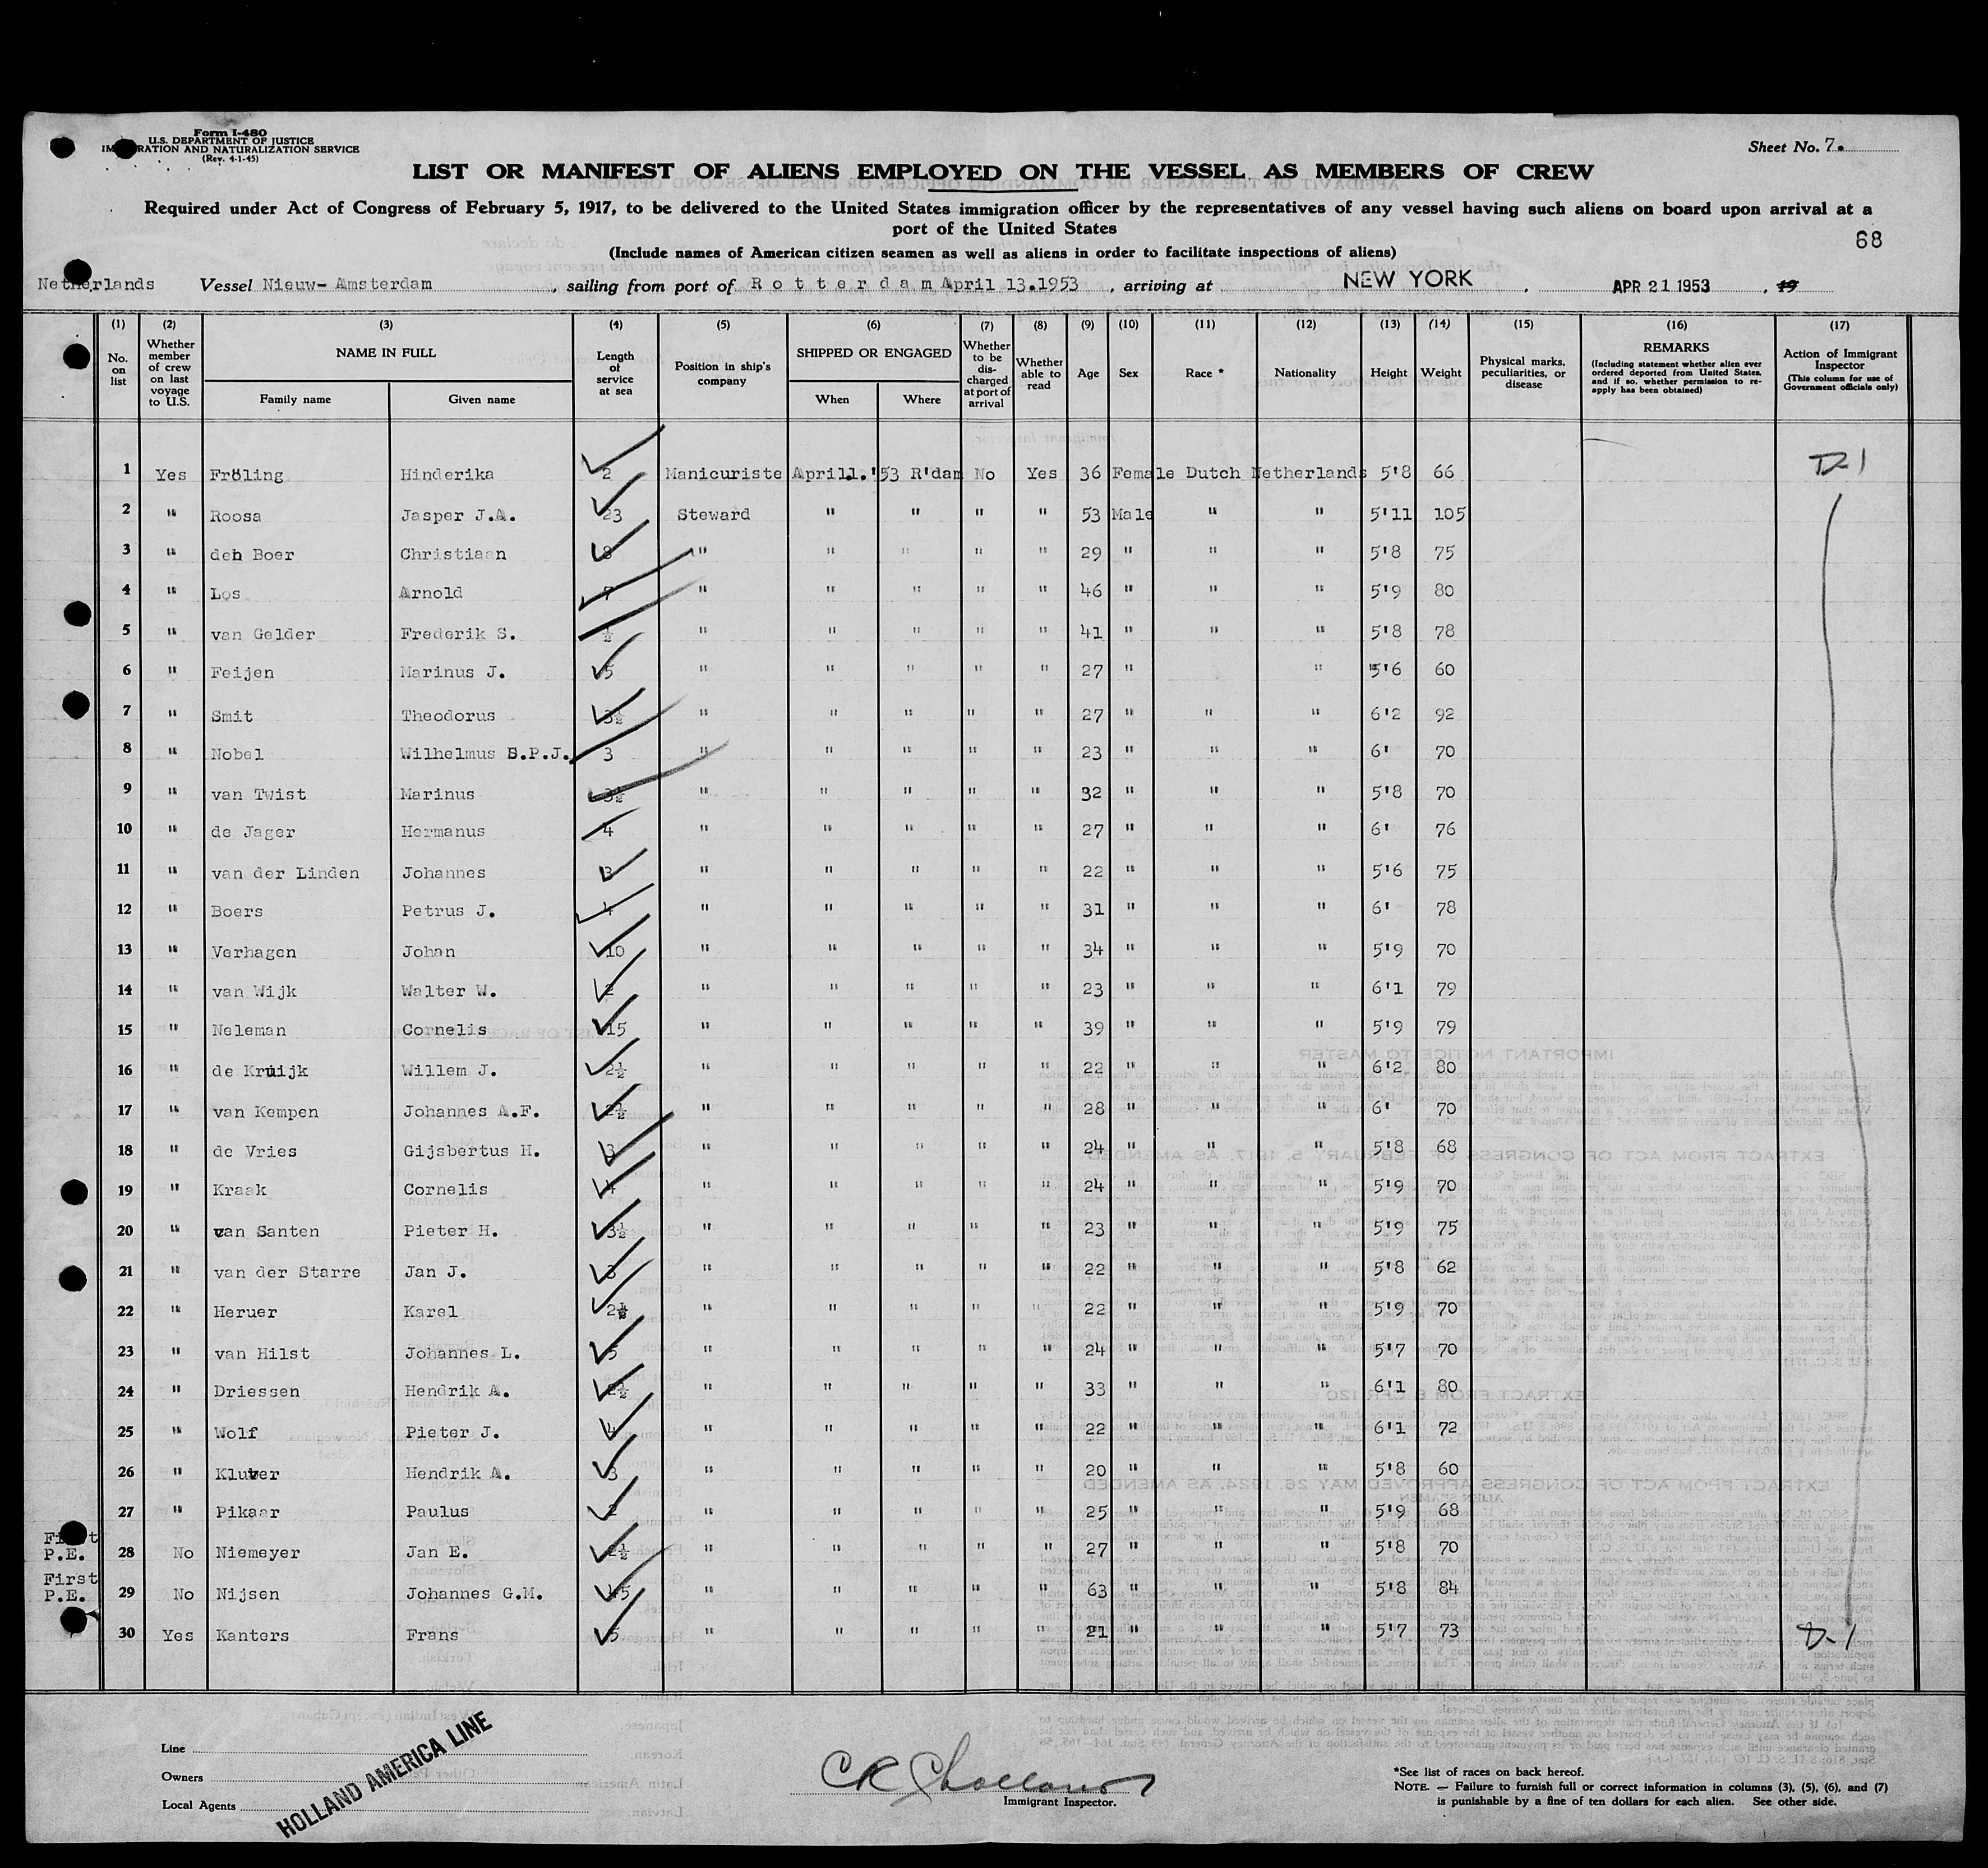 Form I-480
U.S. DEPARTMENT OF JUSTICE
IMMIGRATION AND NATURALIZATION SERVICE
(Rev. 4-1-45)
Sheet No. 7.
LIST OR MANIFEST OF ALIENS EMPLOYED ON THE VESSEL AS MEMBERS OF CREW
Required under Act of Congress of February 5, 1917, to be delivered to the United States immigration officer by the representatives of any vessel having such aliens on board upon arrival at a
port of the United States
68
(Include names of American citizen seamen as well as aliens in order to facilitate inspections of aliens)
Netherlands Vessel Nieuw- Amsterdam, sailing from port of Rotterdam April 13.1953, arriving at NEW YORK, APR 21 1953, 19
(1) (2) (3) (4) (5) (6) (7) (8) (9) (10) (11) (12) (13) (14) (15) (16) (17)
No. on list
Whether member of crew on last voyage to U.S.
NAME IN FULL
Family name Given name
Length of service at sea
Position in ship's company
SHIPPED OR ENGAGED
When Where
Whether to be discharged at port of arrival
Whether able to read
Age
Sex
Race *
Nationality
Height
Weight
Physical marks, peculiarities, or disease
REMARKS
(Including statement whether alien ever ordered deported from United States, and if so, whether permission to reapply has been obtained)
Action of Immigrant Inspector
(This column for use of Government officials only)
1 Yes Fröling Hinderika 2 Manicuriste April1.'53 R'dam No Yes 36 Female Dutch Netherlands 5'8 66 D-1
2 " Roosa Jasper J.A. 23 Steward " " " " 53 Male " " 5'11 105
3 " den Boer Christiaan 8 " " " " " 29 " " " 5'8 75
4 " Los Arnold 7 " " " " " 46 " " " 5'9 80
5 " van Gelder Frederik S. ½ " " " " " 41 " " " 5'8 78
6 " Feijen Marinus J. 5 " " " " " 27 " " 5'6 60
7 " Smit Theodorus 3½ " " " " " 27 " " " 6'2 92
8 " Nobel Wilhelmus S.P.J. 3 " " " " " 23 " " " 6' 70
9 " van Twist Marinus 3½ " " " " " 32 " " " 5'8 70
10 " de Jager Hermanus 4 " " " " " 27 " " " 6' 76
11 " van der Linden Johannes 3 " " " " " 22 " " " 5'6 75
12 " Boers Petrus J. 4 " " " " " 31 " " " 6' 78
13 " Verhagen Johan 10 " " " " " 34 " " " 5'9 70
14 " van Wijk Walter W. 2 " " " " " 23 " " " 6'1 79
15 " Neleman Cornelis 15 " " " " " 39 " " " 5'9 79
16 " de Kruijk Willem J. 2½ " " " " " 22 " " " 6'2 80
17 " van Kempen Johannes A.F. 2½ " " " " " 28 " " " 6' 70
18 " de Vries Gijsbertus H. 3 " " " " " 24 " " " 5'8 68
19 " Kraak Cornelis 4 " " " " " 24 " " " 5'9 70
20 " van Santen Pieter H. 3½ " " " " " 23 " " " 5'9 75
21 " van der Starre Jan J. 3 " " " " " 22 " " " 5'8 62
22 " Heruer Karel 2½ " " " " " 22 " " " 5'9 70
23 " van Hilst Johannes L. 5 " " " " " 24 " " " 5'7 70
24 " Driessen Hendrik A. 2½ " " " " " 33 " " " 6'1 80
25 " Wolf Pieter J. 4 " " " " " 22 " " " 6'1 72
26 " Kluver Hendrik A. 3 " " " " " 20 " " " 5'8 60
27 " Pikaar Paulus 2 " " " " " 25 " " " 5'9 68
First P.E. 28 No Niemeyer Jan E. 2½ " " " " " 27 " " " 5'8 70
First P.E. 29 No Nijsen Johannes G.M. 45 " " " " " 63 " " " 5'8 84
30 Yes Kanters Frans 5 " " " " " 21 " " " 5'7 73 D-1
Line
Owners
Local Agents
HOLLAND AMERICA LINE
Immigrant Inspector.
*See list of races on back hereof.
NOTE. — Failure to furnish full or correct information in columns (3), (5), (6), and (7)
is punishable by a fine of ten dollars for each alien. See other side.